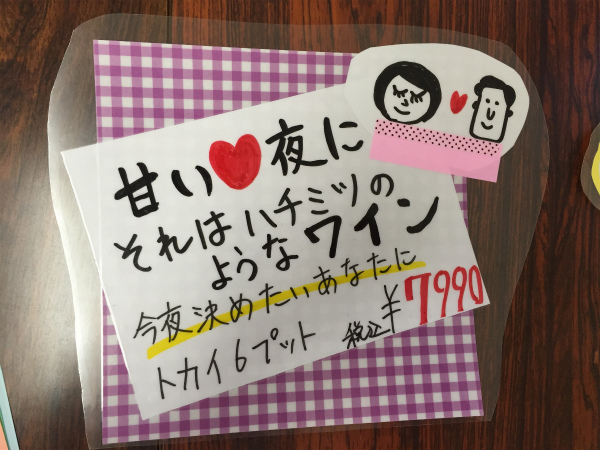 甘い♥夜に
それはハチミツの
ようなワイン
今夜決めたいあなたに
トカイ6プット 税込¥7990